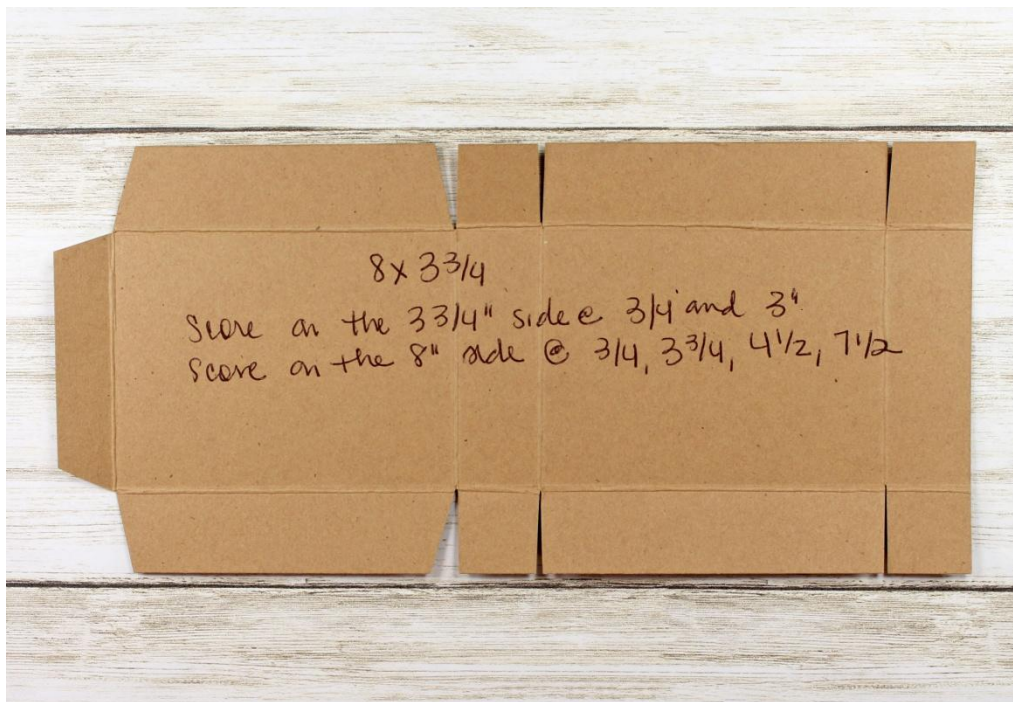 8 x 3 3/4
Score on the 3 3/4" side @ 3/4 and 3"
Score on the 8" side @ 3/4, 3 3/4, 4 1/2, 7 1/2